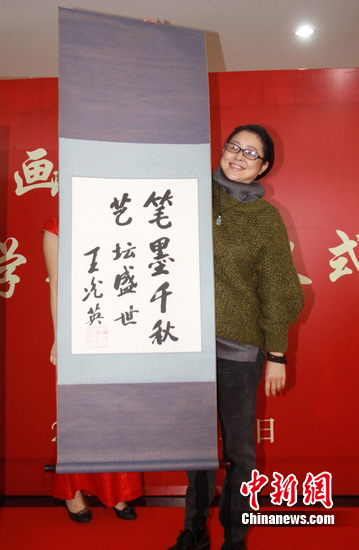 画
学 式
笔墨千秋
艺坛盛世
王光英
2 日
中新网
Chinanews.com